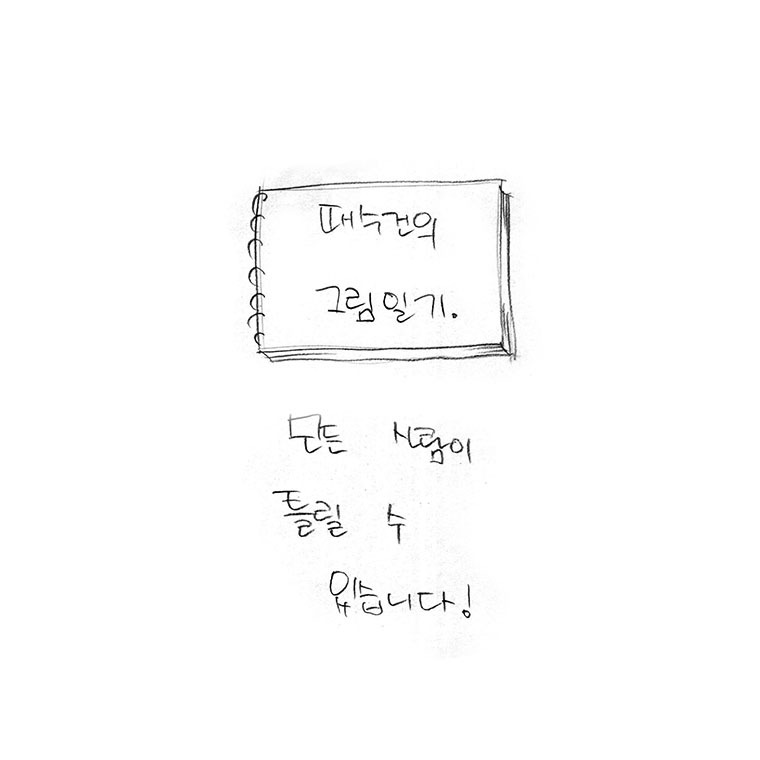 때수건의
그림일기.
모든 사람이
틀릴 수
있습니다!